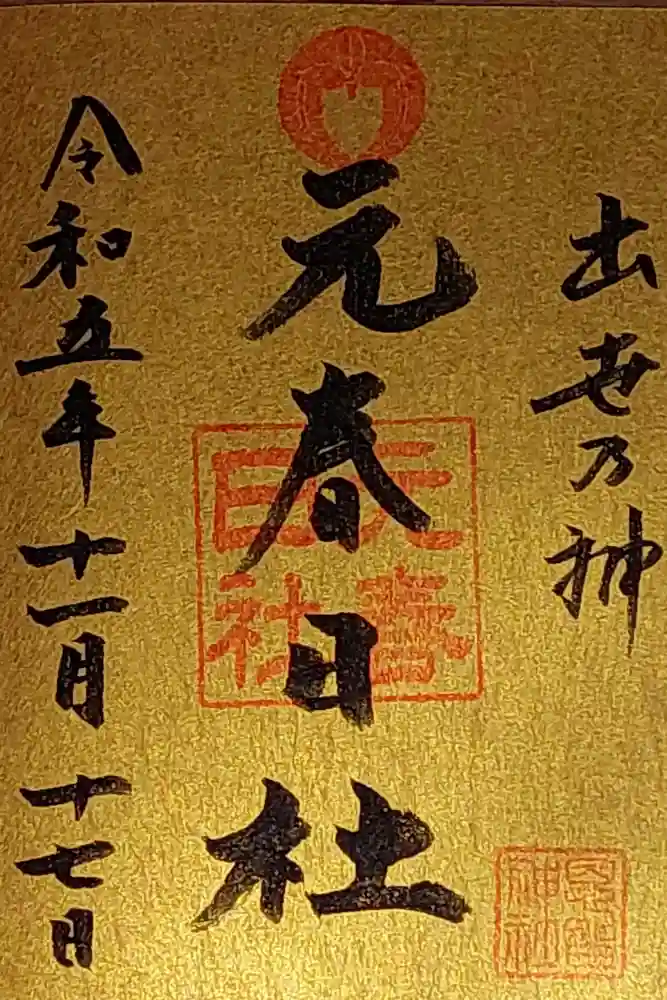 出世乃神
元春日社
元春
日社
令和五年十一月十七日
神社